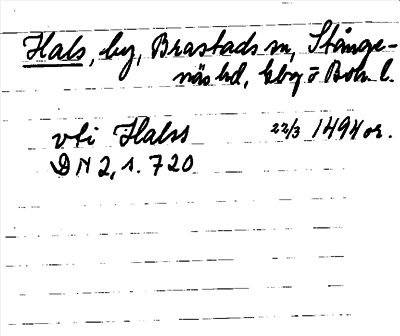 Hals, by, Brastads sn, Stånge-
näs hd, Gbg o Boh l.
vti Halss 22/3 1494 or.
DN 2, 1. 720